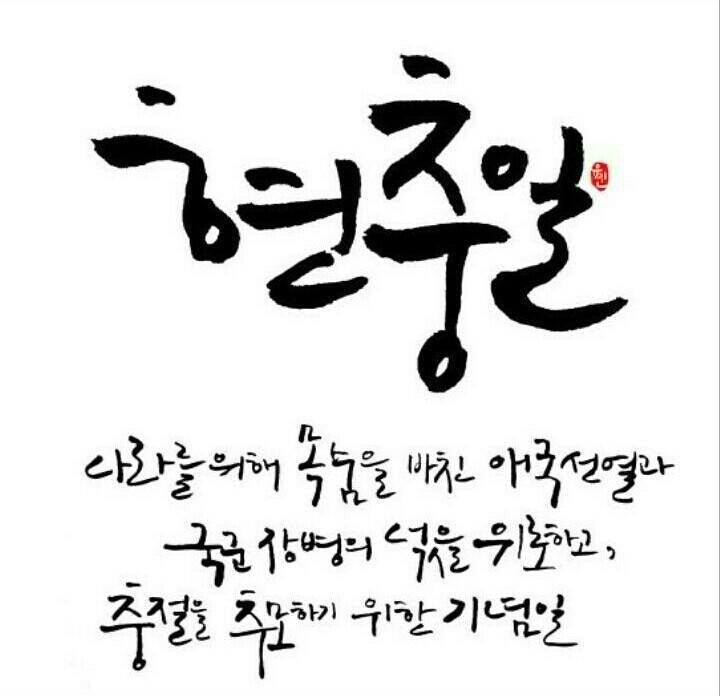 현충일
나라를 위해 목숨을 바친 애국선열과
국군 장병의 넋을 위로하고,
충절을 추모하기 위한 기념일